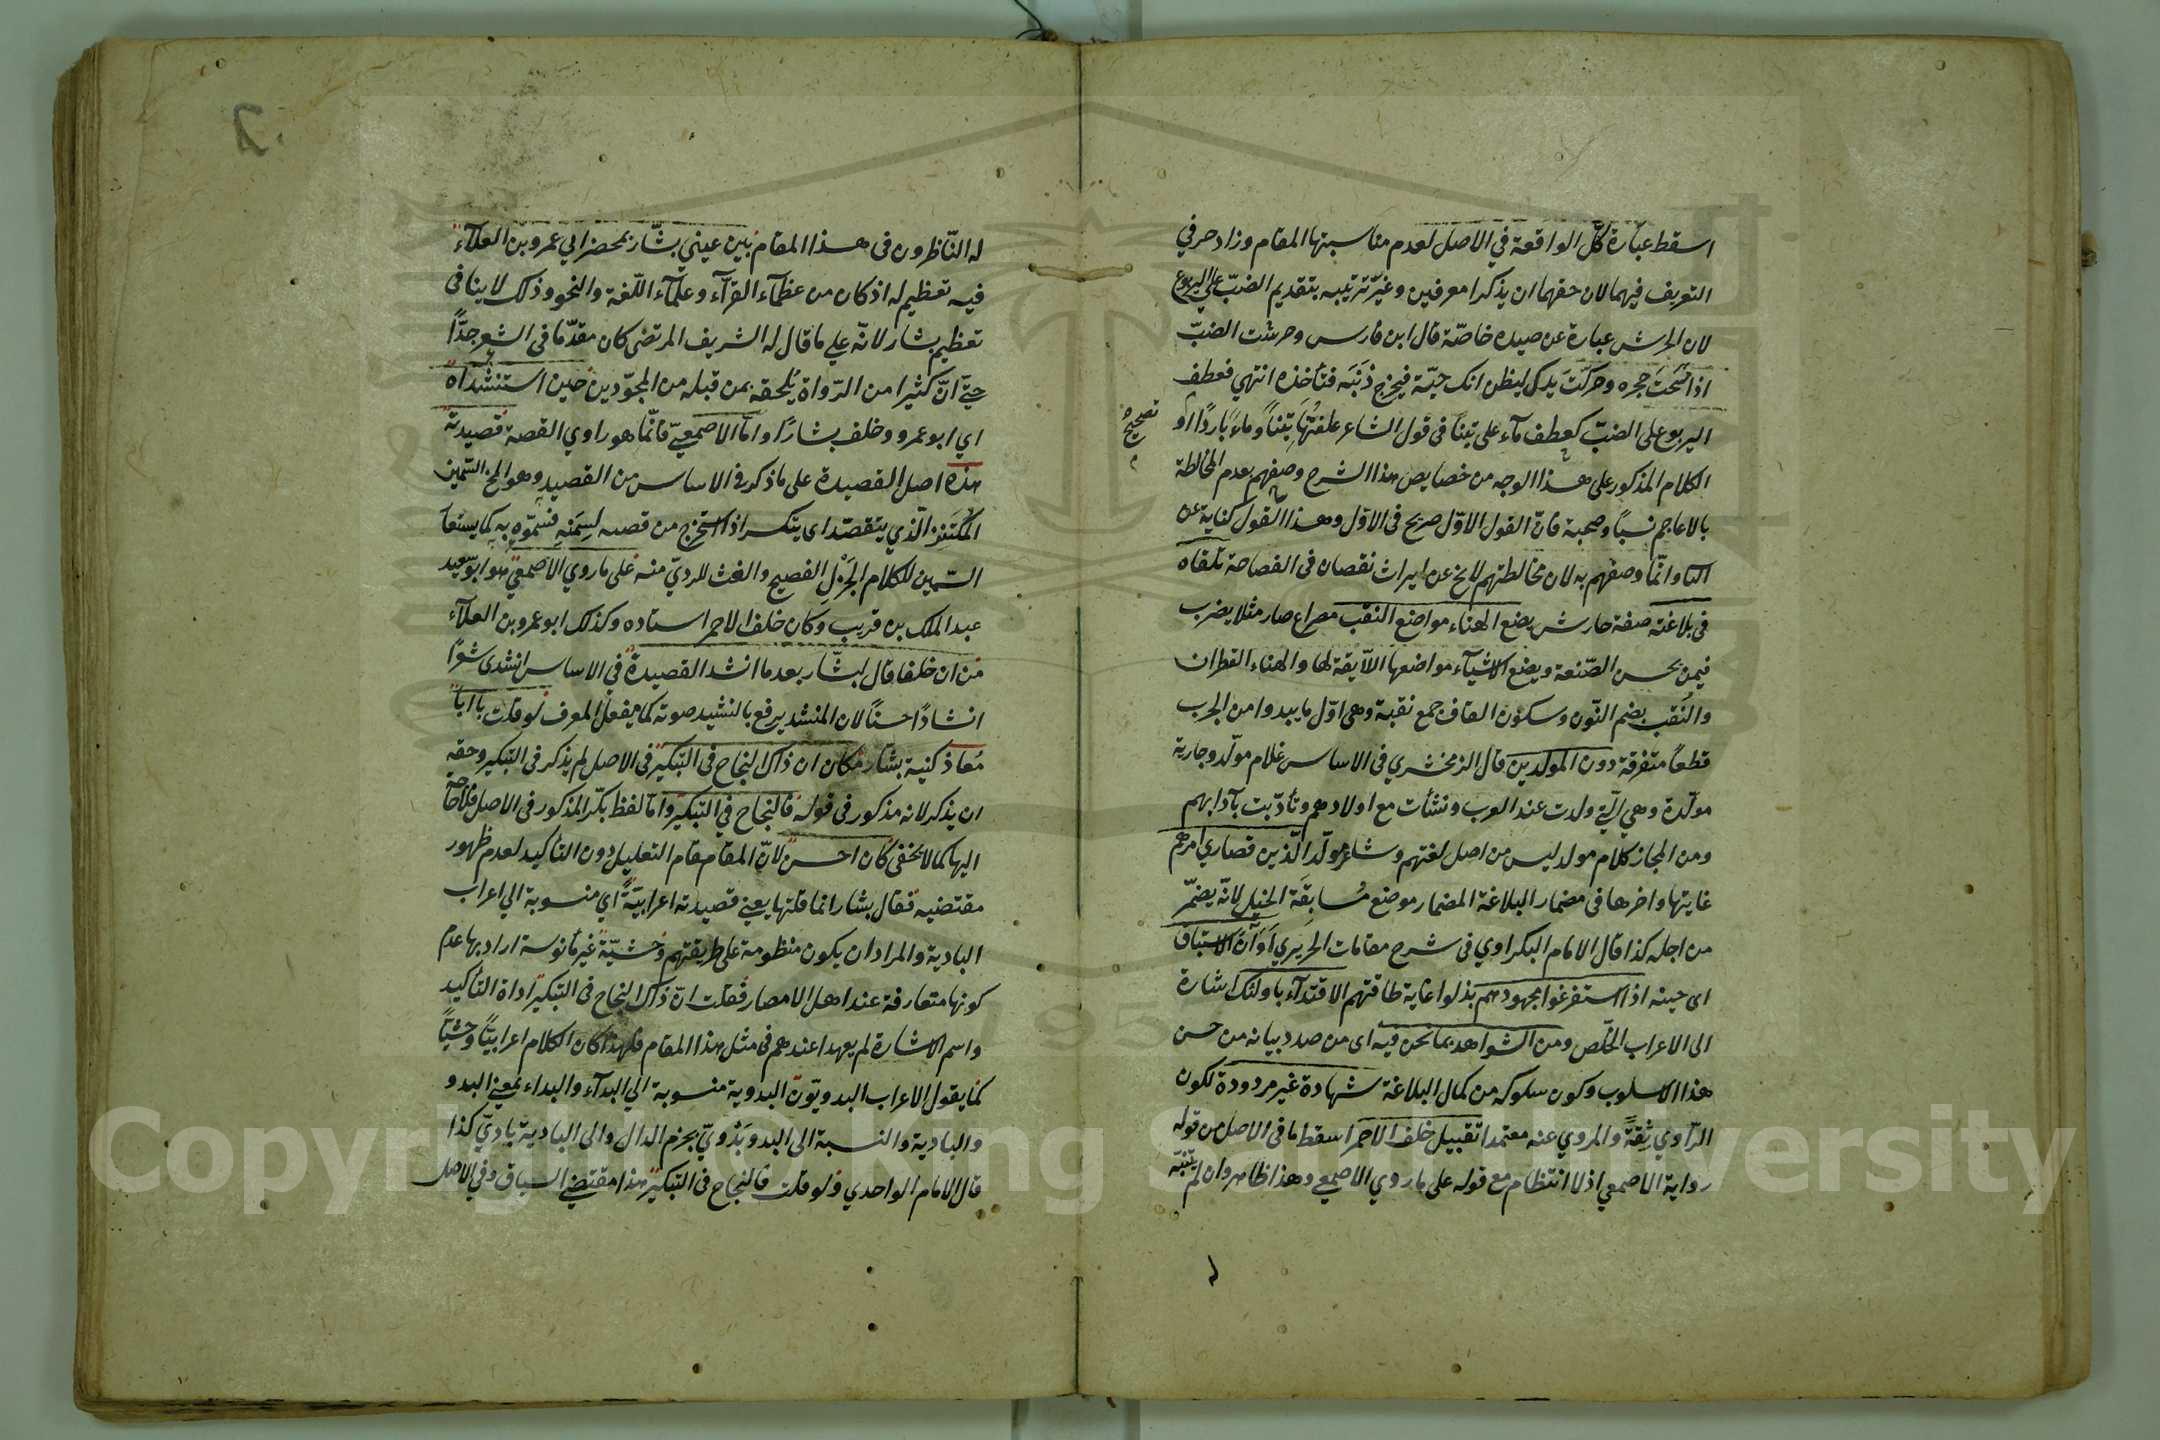 اسقط عبارة كل الواقعة في الاصل لعدم مناسبتها المقام وزاد حرفي
التعريف فيهما لان حقهما ان يذكرا معرفين وغيّر ترتيبه بتقديم الضبّ على اليربوع
لان الحرش عبارة عن صيده خاصّة قال ابن فارس وحرشت الضبّ
اذا مَسَحتَ جحره وحركتَ يدك ليظن انك حيّة فيخرج ذنَبَه فتأخذه انتهي فعطف
اليربوع على الضبّ كعطف مآء على تبنا في قول الشاعر علفتُهَا تِبْناً وماءً بَارداً او
تصحيح
الكلام المذكور على هذا الوجه من خصايص هذا الشرح وصفهم بعدم المخالطة
بالاعاجم نسباً وصحبة فانّ القول الاوّل صريح في الاوّل وهذا القول كناية عن
الثا وانّما وصفهم به لان مخالطتهم لا يخ عن ايراث نقصان في الفصاحة تلقاه
في بلاغته صفة حارش يضع الهناء مواضع النقب مصراع صار مثلا يضرب
فيمن يحسن الصّنعة ويضع الاشيآء مواضعها اللّايقة لها والهناء القطران
والنُقب بضم النّون وسكون القاف جمع نقبة وهي اوّل ما يبدوا من الجرب
قطعاً متفرقة دون المولدين قال الزمخشري في الاساس غلام مولّد وجارية
مولّدة وهي الّتي ولدت عند العرب ونشأت مع اولادهم وتأدّبت بآدابهم
ومن المجاز كلام مولد ليس من اصل لغتهم وشاعر مولّد الّذين قصاري امرهم
غايتها واخرها في مضمار البلاغة المضمار موضع مُسابقَة الخيل لانّه يضمّر
من اجله كذا قال الامام البكراوي في شرح مقامات الحريري اوَآن الاستباق
اى حينه اذا استفرغوا مجهودهم بذلوا غاية طاقتهم الاقتدآء باولئك اشارة
الى الاعراب الخلّص ومن الشواهد بما نحن فيه اى من صدد بيانه من حسن
هذا الاسلوب وكون سلوكه من كمال البلاغة شهادة غير مردودة لكون
الرّاوي ثِقَةً والمروي عنه معتمدا تقبيل خلف الاحمر اسقط ما في الاصل من قوله
رواية الاصمعي اذ لا انتظام مع قوله على ما روي الاصمعي وهذا ظاهر وان لم يتنبّه
له النّاظرون في هذا المقام بين عيني بشّار بمحضر ابي عمرو بن العلآء
فيه تعظيم له اذ كان من عظمآء القرّآء وعلمآء اللّغة والنحو وذلك لا ينافي
تعظيم بشار لانّه على ما قال له الشريف المرتضى كان مقدّما في الشعر جدًّا
حتّى انّ كثيرا من الرّواة يُلحقه بمن قبله من المجوّدين حين استنشداه
اي ابو عمرو وخلف بشارًا وامّا الاصمعيّ فانّما هو راوي القصة قصيدته
هذه اصل القصيدة على ما ذكر في الاساس من القصيد وهو المخ السّمين
المكتنز الّذي يتقصّد اى يتكسر اذا استخرج من قصبه لسِمَنه فسمّوه به كما يستعار
السّمين للكلام الجَزْل الفصيح والغث للرديّ منه على ما روي الاصمعيّ هو ابو سعيد
عبد الملك بن قريب وكان خلف الاحمر استاده وكذلك ابو عمرو بن العلآء
من ان خلفا قال لبشّار بعد ما انشد القصيدة في الاساس انشدى شعرًا
انشادًا حسناً لان المنشد يرفع بالنشيد صوته كما يفعل المعرف لو قلت يا ابا
مُعاذ كنية بشار مكان ان ذاك النجاح في التبكير في الاصل لم يذكر في التبكير وحقه
ان يذكر لانه مذكور في قوله فالنجاح في التبكير وامّا لفظ بكّر المذكور في الاصل فلا حاجة
اليها كما لا يخفى كان احسن لانّ المقام مقام التعليل دون التأكيد لعدم ظهور
مقتضيه فقال بشار انما قلتها يعني قصيدته اعرابيّةً اي منسوبة الي اعراب
البادية والمراد ان يكون منظومة على طريقتهم وحشيّة غير مأنوسة اراد بها عدم
كونها متعارفة عند اهل الامصار فقلت انّ ذاك النجاح في التبكير اداة التأكيد
واسم الاشارة لم يعهدا عندهم في مثل هذا المقام فلهذا كان الكلام اعرابيّاً وحشيّاً
كما يقول الاعراب البدويّون البدوية منسوبة الي البدآء والبداء بمعنى البدو
والبادية والنسبة الى البدو بَدْويّ بجزم الدال والى البادية باديّ كذا
قال الامام الواحدي ولو قلت فالنجاح في التبكير هذا مقتضى السياق وفي الاصل
Copyright © King Saud University